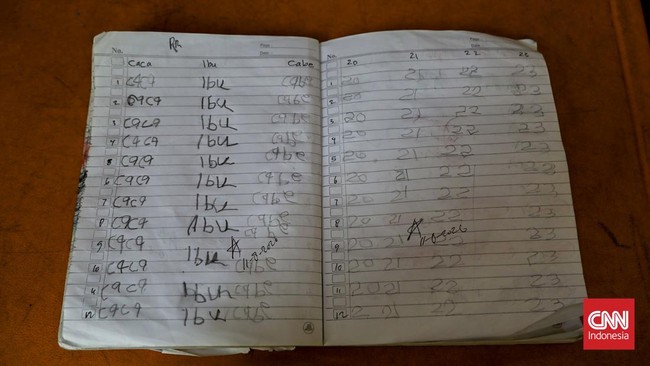 No.
caca Ibu cabe
1 caca Ibu cabe
2 caca Ibu cabe
3 caca Ibu cabe
4 caca Ibu cabe
5 caca Ibu cabe
6 caca Ibu cabe
7 caca Ibu cabe
8 caca Ibu cabe
9 caca Ibu cabe
10 caca cabe
11 caca Ibu cabe
12 caca Ibu cabe
No.
20 21 22 23
1 20 21 22 23
2 20 21 22 23
3 20 21 22 23
4 20 21 22 23
5 20 21 22 23
6 20 21 22 23
7 20 21 22 23
8 20 21 22 23
9 20 21 22 23
10 20 21 22 23
11 20 21 22 23
12 20 21 22 23
CNN
Indonesia